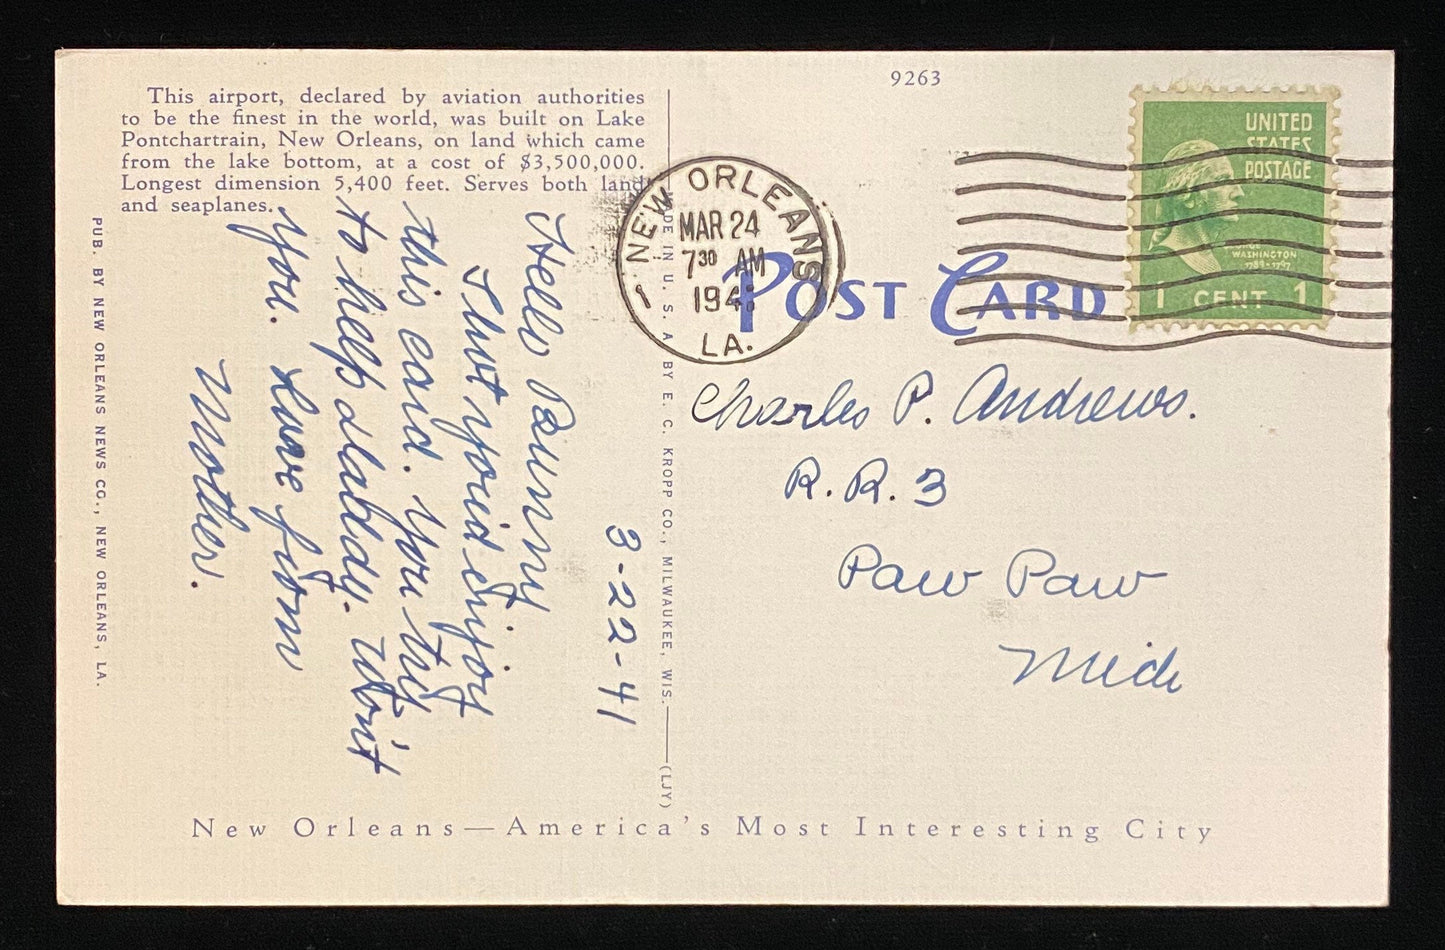 9263
This airport, declared by aviation authorities
to be the finest in the world, was built on Lake
Pontchartrain, New Orleans, on land which came
from the lake bottom, at a cost of $3,500,000.
Longest dimension 5,400 feet. Serves both land
and seaplanes.
PUB. BY NEW ORLEANS NEWS CO., NEW ORLEANS, LA.
3-22-41
Hello Bunny
you'd enjoy
this card. You try
to help daddy. Won't
you. Love from
Mother.
MADE IN U. S. A. BY E. C. KROPP CO., MILWAUKEE, WIS.—(LJY)
NEW ORLEANS
1
MAR 24
7 30 AM
194
LA.
POST CARD
UNITED
STATES
POSTAGE
WASHINGTON
1789-1797
1 CENT 1
Charles P. Andrews.
R. R. 3
Paw Paw
Mich
New Orleans—America's Most Interesting City